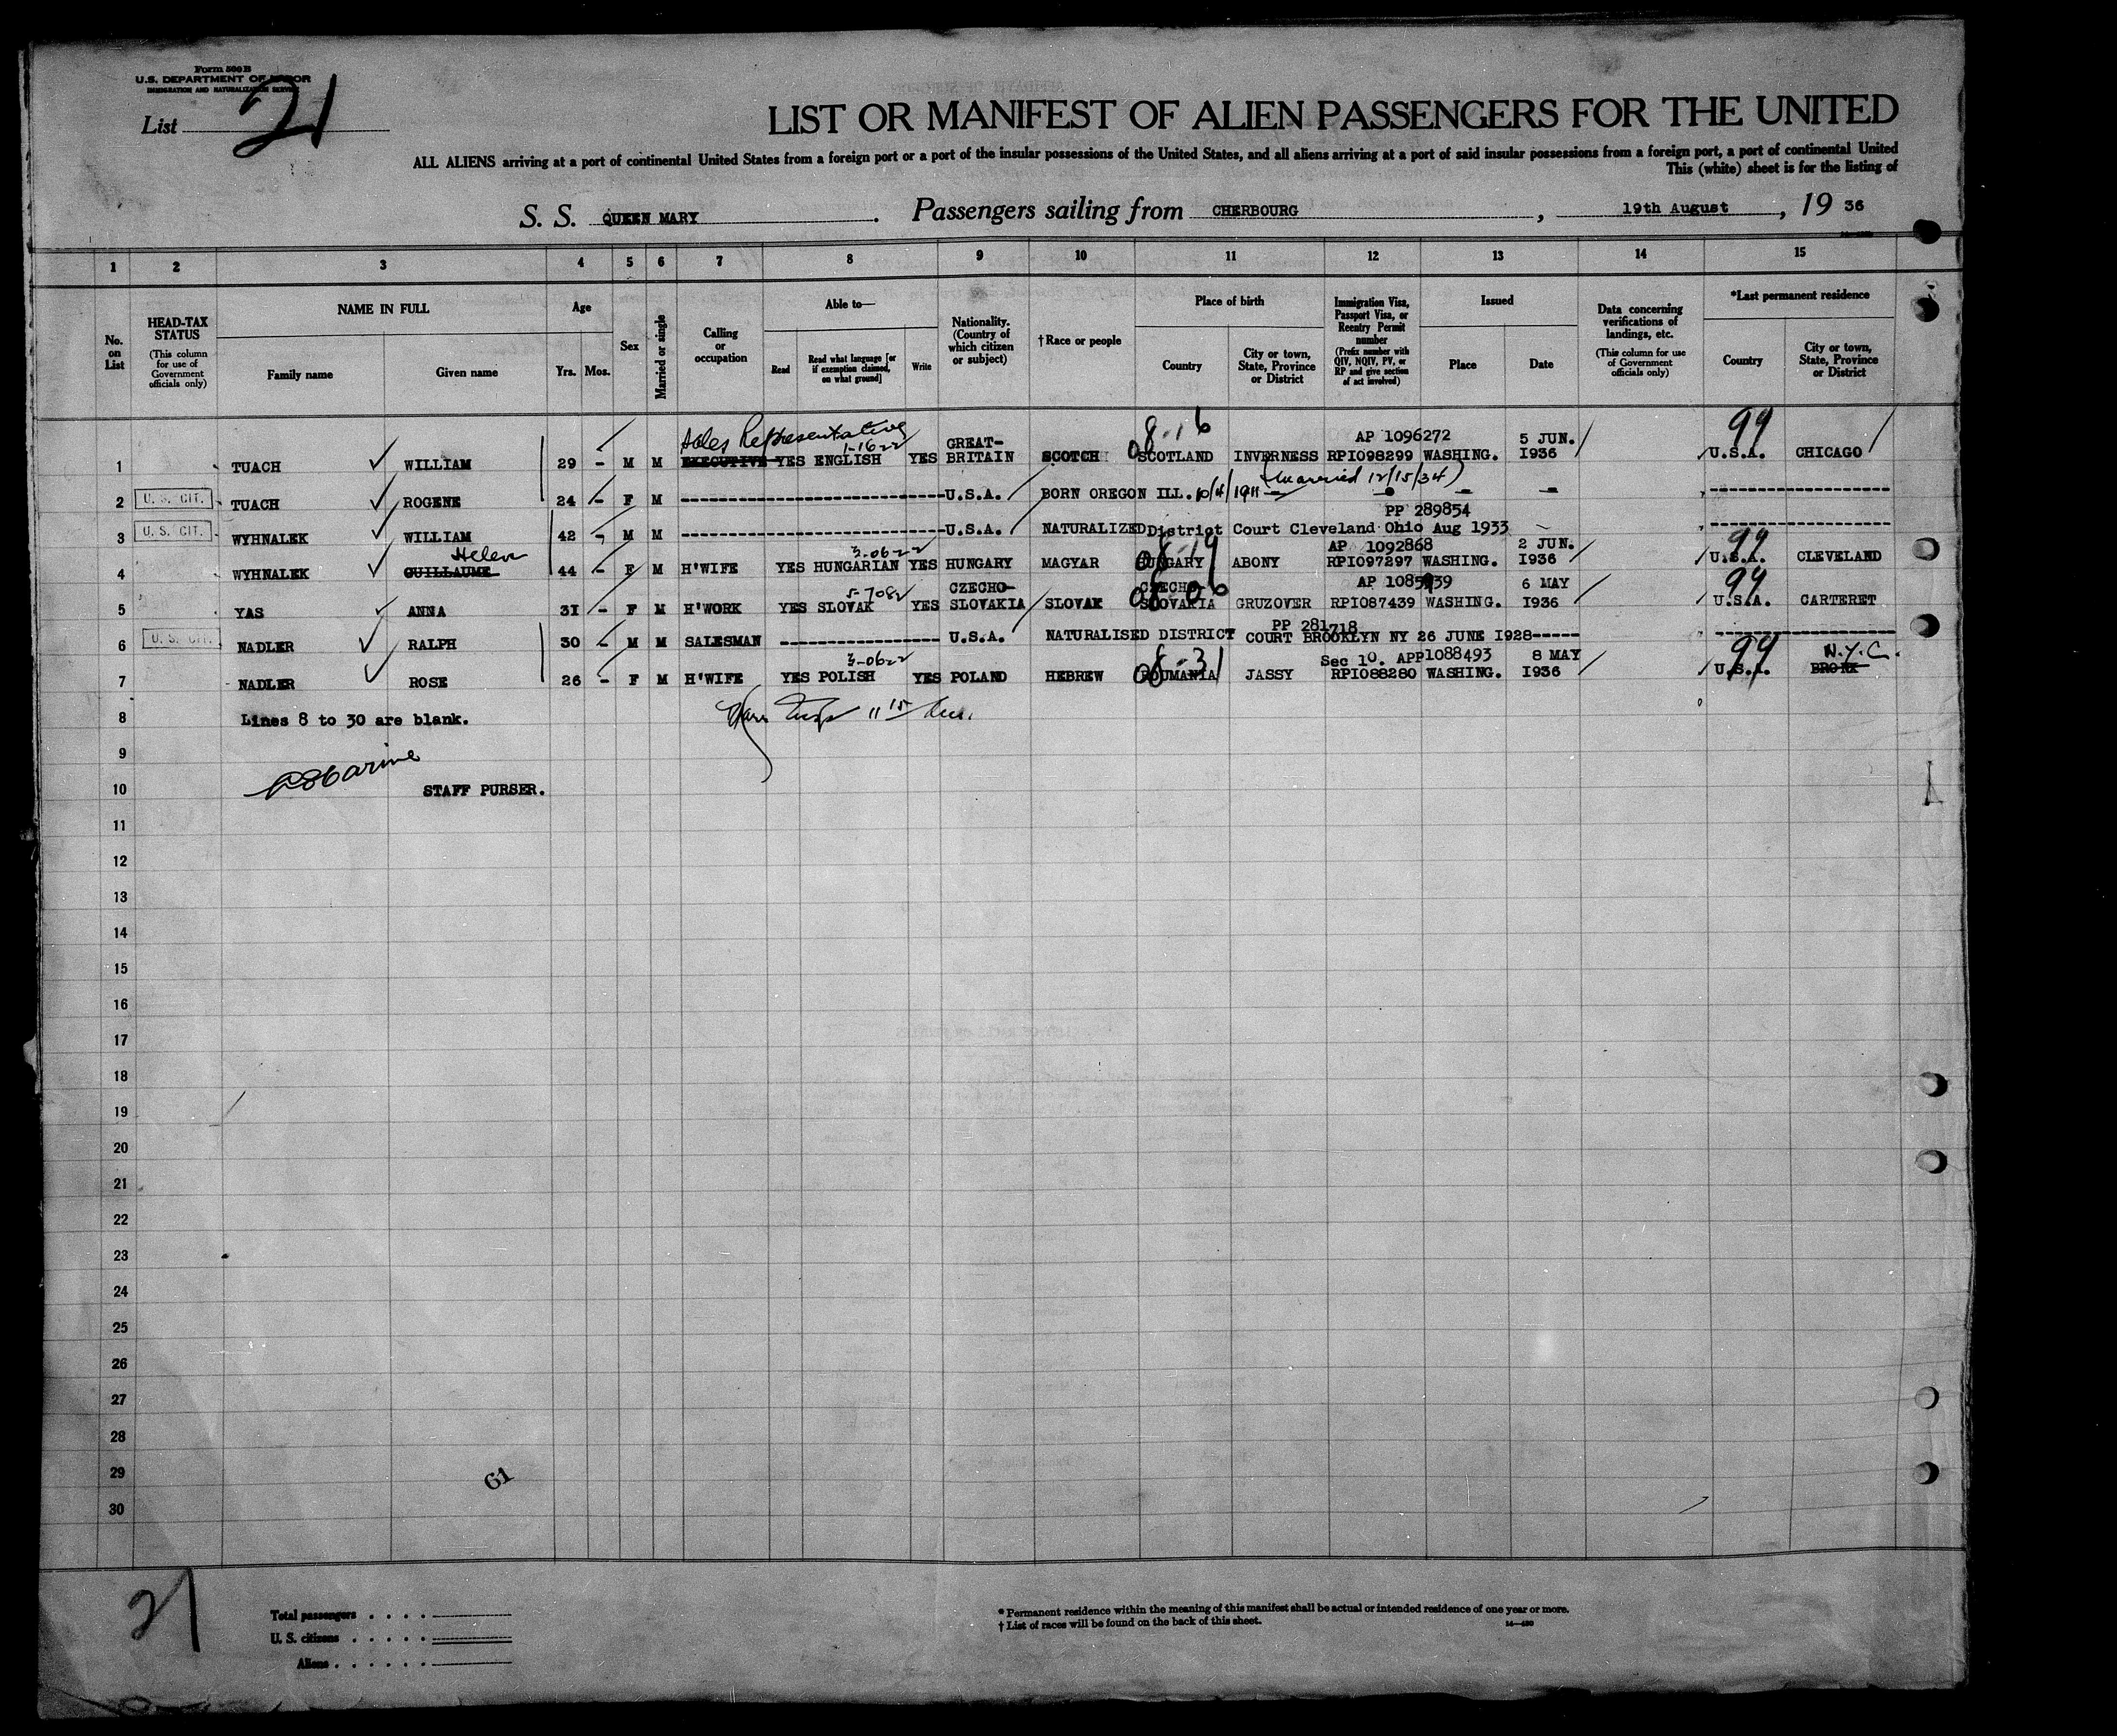 Form 500 B
U.S. DEPARTMENT OF LABOR
IMMIGRATION AND NATURALIZATION SERVICE
List 21
LIST OR MANIFEST OF ALIEN PASSENGERS FOR THE UNITED
ALL ALIENS arriving at a port of continental United States from a foreign port or a port of the insular possessions of the United States, and all aliens arriving at a port of said insular possessions from a foreign port, a port of continental United
This (white) sheet is for the listing of
S. S. QUEEN MARY . Passengers sailing from CHERBOURG , 19th August , 19 36
1 2 3 4 5 6 7 8 9 10 11 12 13 14 15
No. on List
HEAD-TAX STATUS (This column for use of Government officials only)
NAME IN FULL
Family name Given name
Age
Yrs. Mos.
Sex
Married or single
Calling or occupation
Able to—
Read Read what language [or if exemption claimed, on what ground] Write
Nationality. (Country of which citizen or subject)
†Race or people
Place of birth
Country City or town, State, Province or District
Immigration Visa, Passport Visa, or Reentry Permit number (Prefix number with QIV, NQIV, PV, or RP and give section of act involved)
Issued
Place Date
Data concerning verifications of landings, etc. (This column for use of Government officials only)
*Last permanent residence
Country City or town, State, Province or District
Sales Representative 1-1622 GREAT- 8-16 AP 1096272 5 JUN. 99
1 TUACH WILLIAM 29 - M M EXECUTIVE YES ENGLISH YES BRITAIN SCOTCH SCOTLAND INVERNESS RPI098299 WASHING. I936 U.S.A. CHICAGO
(Married 12/15/34)
2 U. S. CIT. TUACH ROGENE 24 - F M ---U.S.A. BORN OREGON ILL. 10/4/1911 — - - -
PP 289854
3 U. S. CIT. WYHNALEK WILLIAM 42 - M M ---U.S.A. NATURALIZED District Court Cleveland Ohio Aug 1933
Helen 3-0622 08-19 AP 1092868 2 JUN. 99
4 WYHNALEK GUILLAUME 44 - F M H'WIFE YES HUNGARIAN YES HUNGARY MAGYAR HUNGARY ABONY RPI097297 WASHING. I936 U.S.A. CLEVELAND
5-7082 CZECHO- CZECHO- 08-06 AP 1085939 6 MAY 99
5 YAS ANNA 3I - F M H'WORK YES SLOVAK YES SLOVAKIA SLOVAK SLOVAKIA GRUZOVER RPI087439 WASHING. I936 U.S.A. CARTERET
PP 281718
6 U. S. CIT. NADLER RALPH 30 - M M SALESMAN --- U.S.A. NATURALISED DISTRICT COURT BROOKLYN NY 26 JUNE I928-----
3-0622 08-31 Sec 10. APP1088493 8 MAY 99 N.Y.C.
7 NADLER ROSE 26 - F M H'WIFE YES POLISH YES POLAND HEBREW ROUMANIA JASSY RPI088280 WASHING. I936 U.S.A. BRONX
8 Lines 8 to 30 are blank.
9
10 STAFF PURSER.
11
12
13
14
15
16
17
18
19
20
21
22
23
24
25
26
27
28
29
30
61
21
Total passengers . . . .
U. S. citizens . . . . .
Aliens . . . . . .
* Permanent residence within the meaning of this manifest shall be actual or intended residence of one year or more.
† List of races will be found on the back of this sheet.